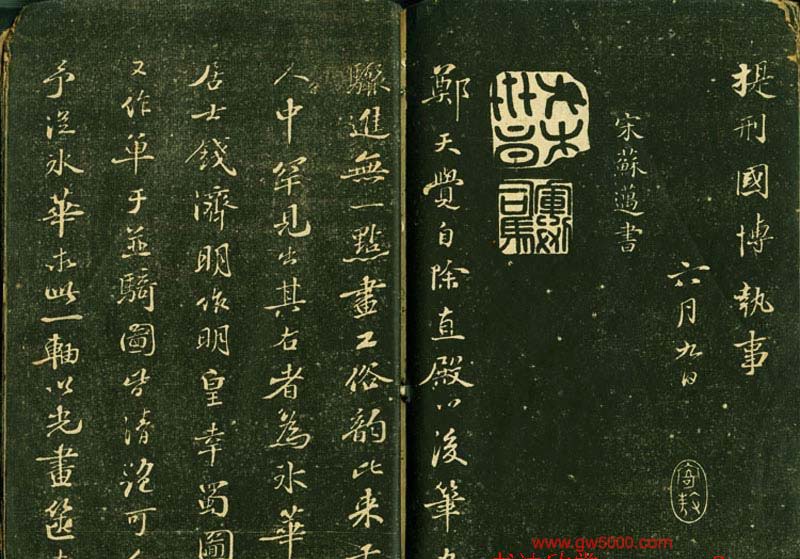 提刑國博執事
六月九日
宋蘇邁書
鄭天覺自除直殿以後筆
驟進無一點畫工俗韵比來
人中罕見出其右者為水華
居士錢濟明作明皇幸蜀圖
又作單于並騎圖皆清絕可
予從水華求此一軸以光畫篋
www.gw5000.com